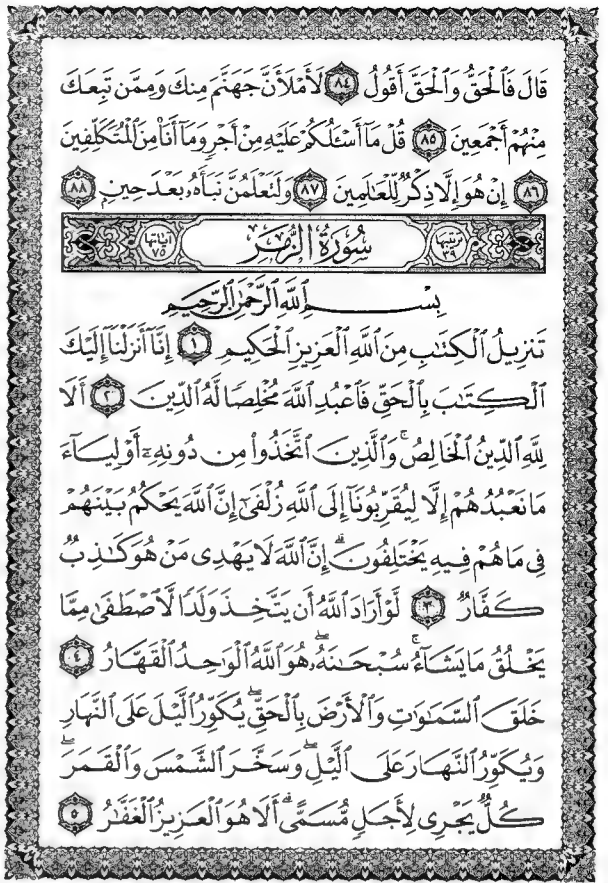 قَالَ فَالْحَقُّ وَالْحَقَّ أَقُولُ ٨٤ لَأَمْلَأَنَّ جَهَنَّمَ مِنكَ وَمِمَّن تَبِعَكَ
مِنْهُمْ أَجْمَعِينَ ٨٥ قُلْ مَآ أَسْـَٔلُكُمْ عَلَيْهِ مِنْ أَجْرٍ وَمَآ أَنَا۠ مِنَ الْمُتَكَلِّفِينَ
٨٦ إِنْ هُوَ إِلَّا ذِكْرٌ لِّلْعَـٰلَمِينَ ٨٧ وَلَتَعْلَمُنَّ نَبَأَهُۥ بَعْدَ حِينِۭ ٨٨
ترتيبها ٣٩ سُورَةُ الزُّمَرِ آياتها ٧٥
بِسْمِ اللَّهِ الرَّحْمَـٰنِ الرَّحِيمِ
تَنزِيلُ الْكِتَـٰبِ مِنَ اللَّهِ الْعَزِيزِ الْحَكِيمِ ١ إِنَّآ أَنزَلْنَآ إِلَيْكَ
الْكِتَـٰبَ بِالْحَقِّ فَاعْبُدِ اللَّهَ مُخْلِصًا لَّهُ الدِّينَ ٢ أَلَا
لِلَّهِ الدِّينُ الْخَالِصُ ۚ وَالَّذِينَ اتَّخَذُوا۟ مِن دُونِهِۦٓ أَوْلِيَآءَ
مَا نَعْبُدُهُمْ إِلَّا لِيُقَرِّبُونَآ إِلَى اللَّهِ زُلْفَىٰٓ إِنَّ اللَّهَ يَحْكُمُ بَيْنَهُمْ
فِى مَا هُمْ فِيهِ يَخْتَلِفُونَ ۗ إِنَّ اللَّهَ لَا يَهْدِى مَنْ هُوَ كَـٰذِبٌ
كَفَّارٌ ٣ لَّوْ أَرَادَ اللَّهُ أَن يَتَّخِذَ وَلَدًا لَّاصْطَفَىٰ مِمَّا
يَخْلُقُ مَا يَشَآءُ ۚ سُبْحَـٰنَهُۥ ۖ هُوَ اللَّهُ الْوَاحِدُ الْقَهَّارُ ٤
خَلَقَ السَّمَـٰوَٰتِ وَالْأَرْضَ بِالْحَقِّ ۖ يُكَوِّرُ الَّيْلَ عَلَى النَّهَارِ
وَيُكَوِّرُ النَّهَارَ عَلَى الَّيْلِ ۖ وَسَخَّرَ الشَّمْسَ وَالْقَمَرَ ۖ
كُلٌّ يَجْرِى لِأَجَلٍ مُّسَمًّى ۗ أَلَا هُوَ الْعَزِيزُ الْغَفَّـٰرُ ٥